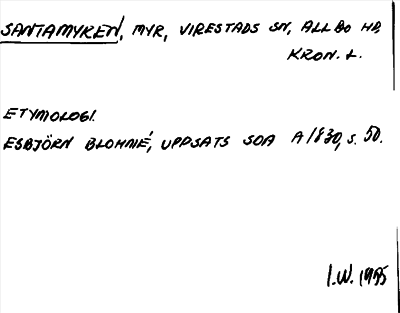 SANTAMYREN, MYR, VIRESTADS SN, ALLBO HD,
KRON. L.
ETYMOLOGI.
ESBJÖRN BLOHMÉ, UPPSATS SOA A 1830, S. 50.
I.W. 1995